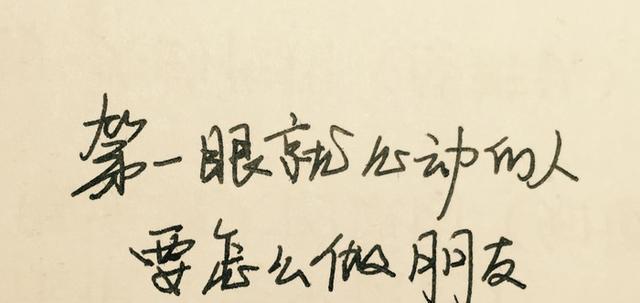 第一眼就心动的人
要怎么做朋友